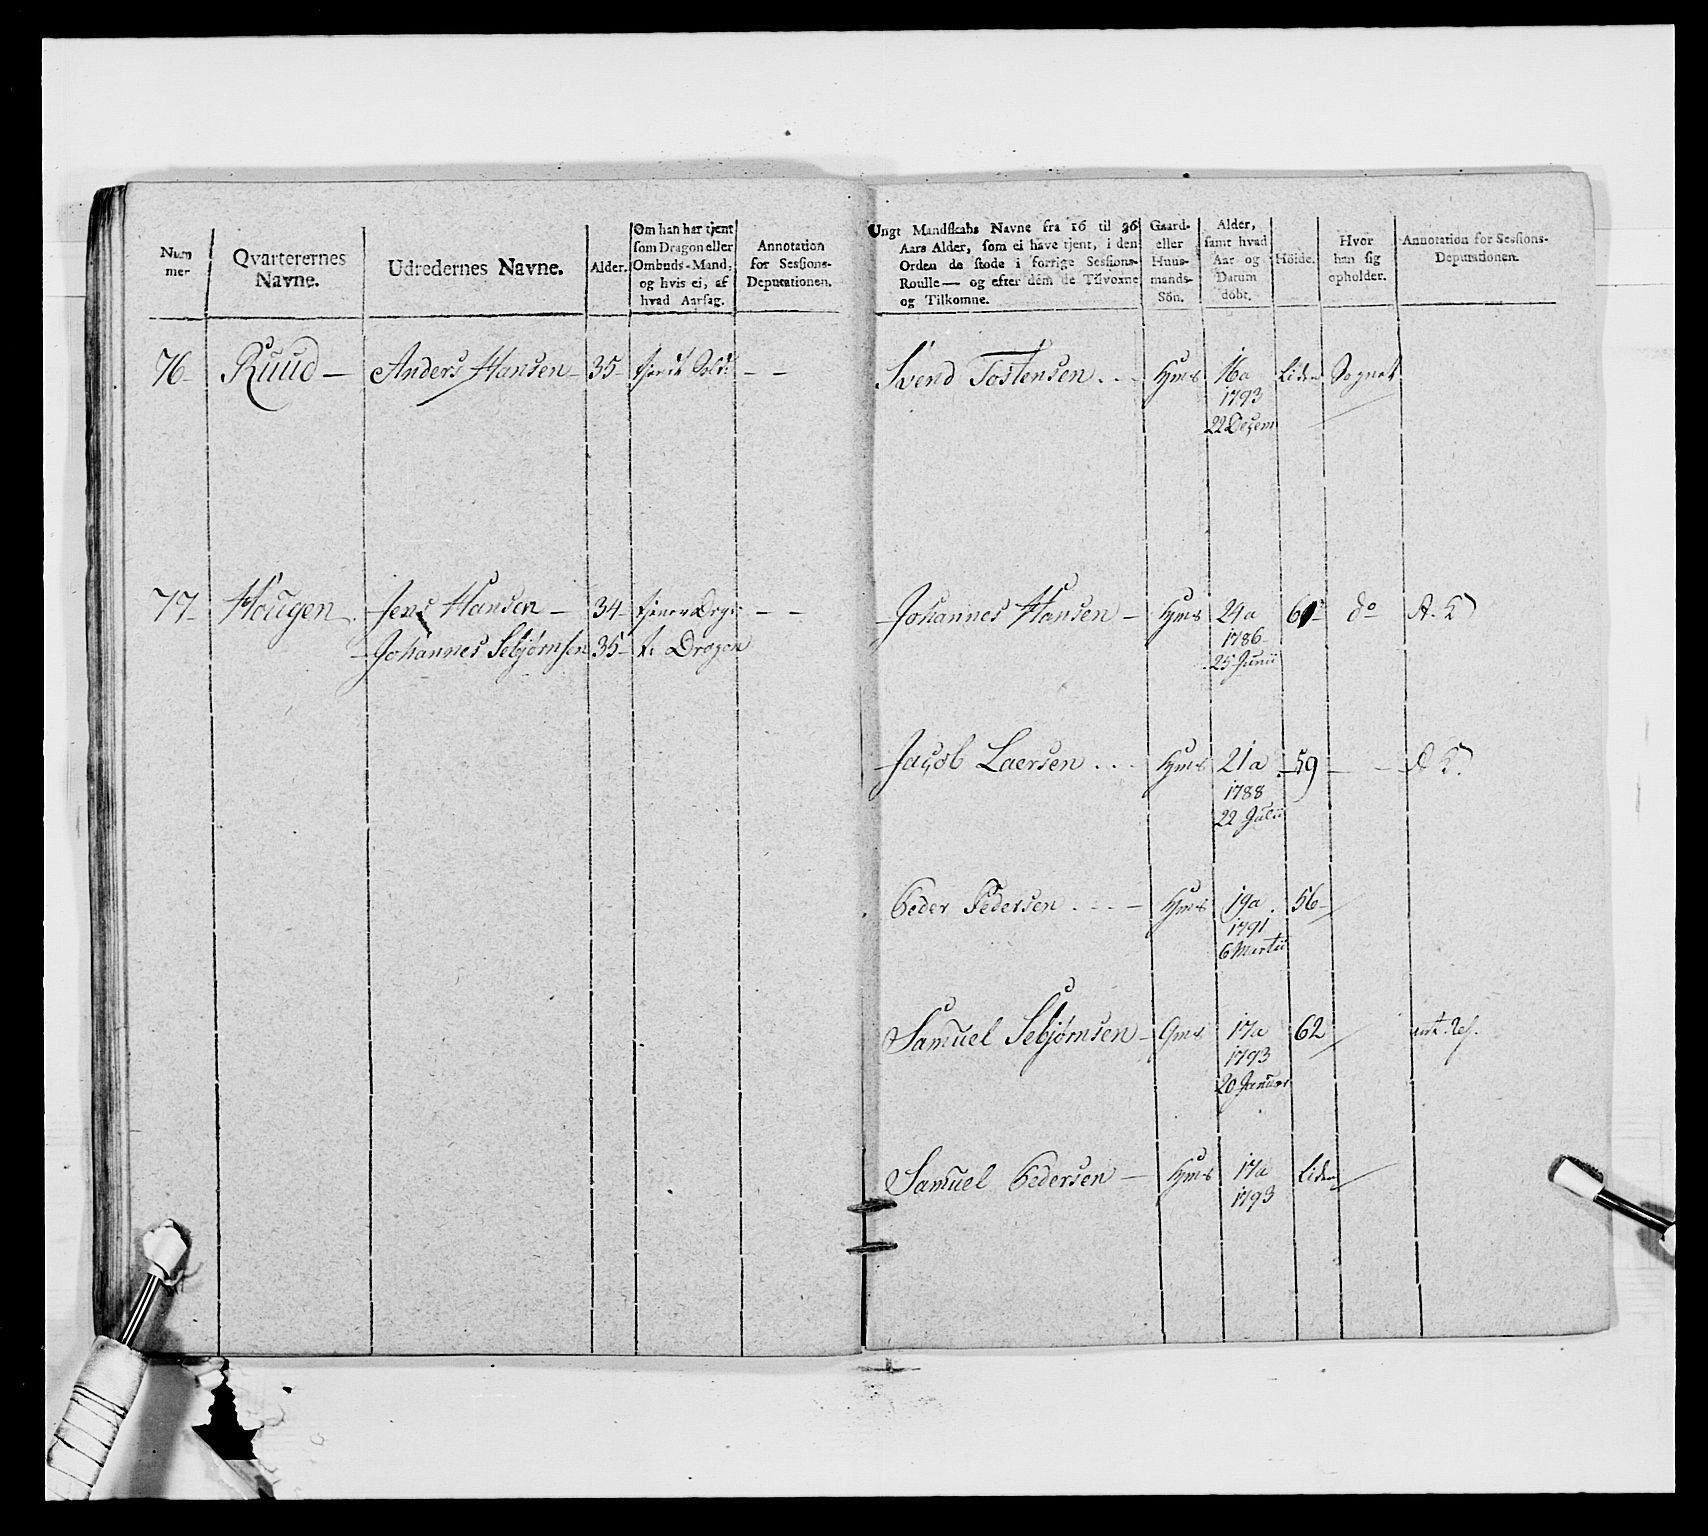 Num
mer
Qvarterernes
Navne.
Udredernes Navne.
Alder.
Om han har tjent
som Dragon eller
Ombuds-Mand,
og hvis ei, af
hvad Aarsag.
Annotation
for Sessions-
Deputationen.
Ungt Mandskabs Navne fra 16 til 36
Aars Alder, som ei have tjent, i den
Orden de stode i forrige Sessions-
Roulle — og efter dem de Tilvoxne
og Tilkomne.
Gaard-
eller
Huus-
mands-
Sön.
Alder,
samt hvad
Aar og
Datum
döbt.
Höide.
Hvor
han sig
opholder.
Annotation for Sessions-
Deputationen.
76 Ruud — Anders Hansen 35 tjendt Sold: — —
Svend Tostensen . . . Hms 16a Liden Sognet
1793
22 Decem
77 Hougen Jens Hansen — 34 tjener Drag: — —
Johannes Sebjørnsen 35 t: Dragon
Johannes Hansen — Hms 24a 61 do
1786
25 Junii
Jacob Laersen . . . Hms 21a 59 — —
1788
22 Julii
Peder Pedersen . . . — Hms 19a 56
1791
6 Martii
Samuel Sebjørnsen — Gms 17a 62
1793
20 Januar
Samuel Pedersen — Hms 17a Liden
1793